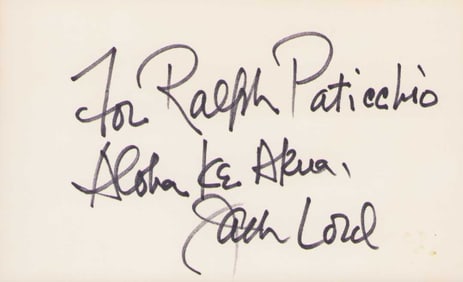 For Ralph Paticchio
Aloha Ke Akua,
Jack Lord